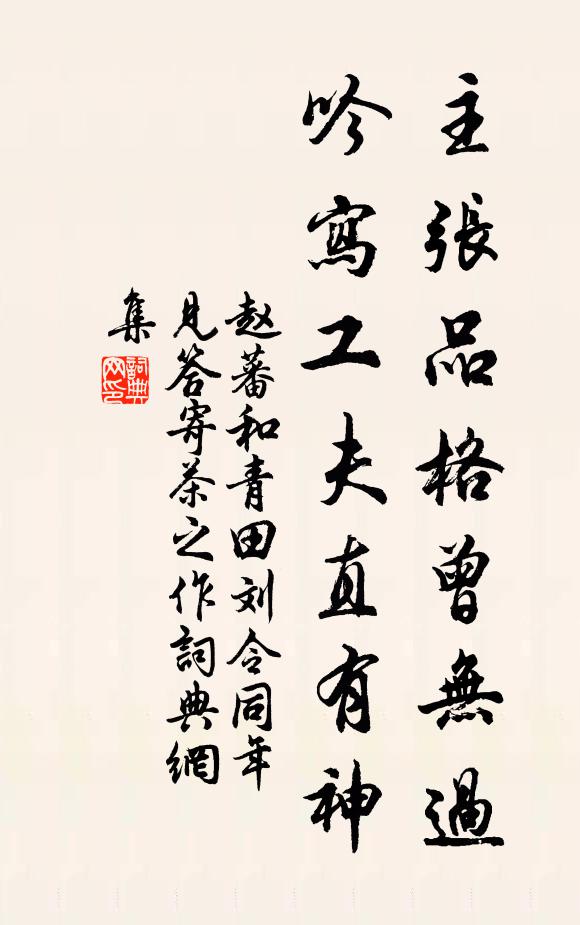 主張品格曾無過
吟寫工夫直有神
赵蕃和青田刘令同年
見答寄茶之作詞典網
集
詞典
网印